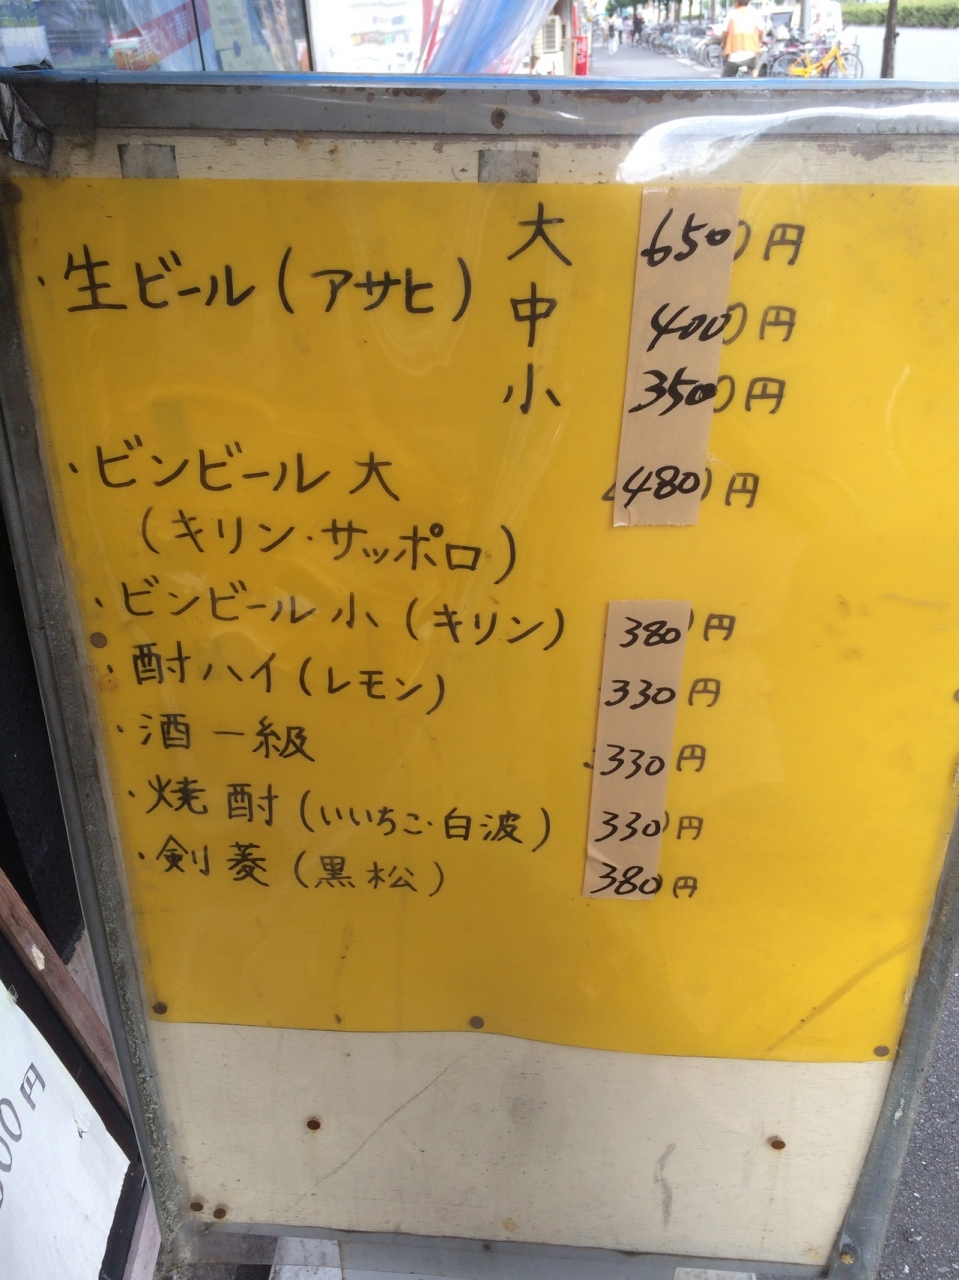 ・生ビール(アサヒ) 大 650円
中 400円
小 350円
・ビンビール 大 480円
(キリン・サッポロ)
・ビンビール 小(キリン) 380円
・酎ハイ(レモン) 330円
・酒 一級 330円
・焼酎(いいちこ・白波) 330円
・剣菱(黒松) 380円
00円